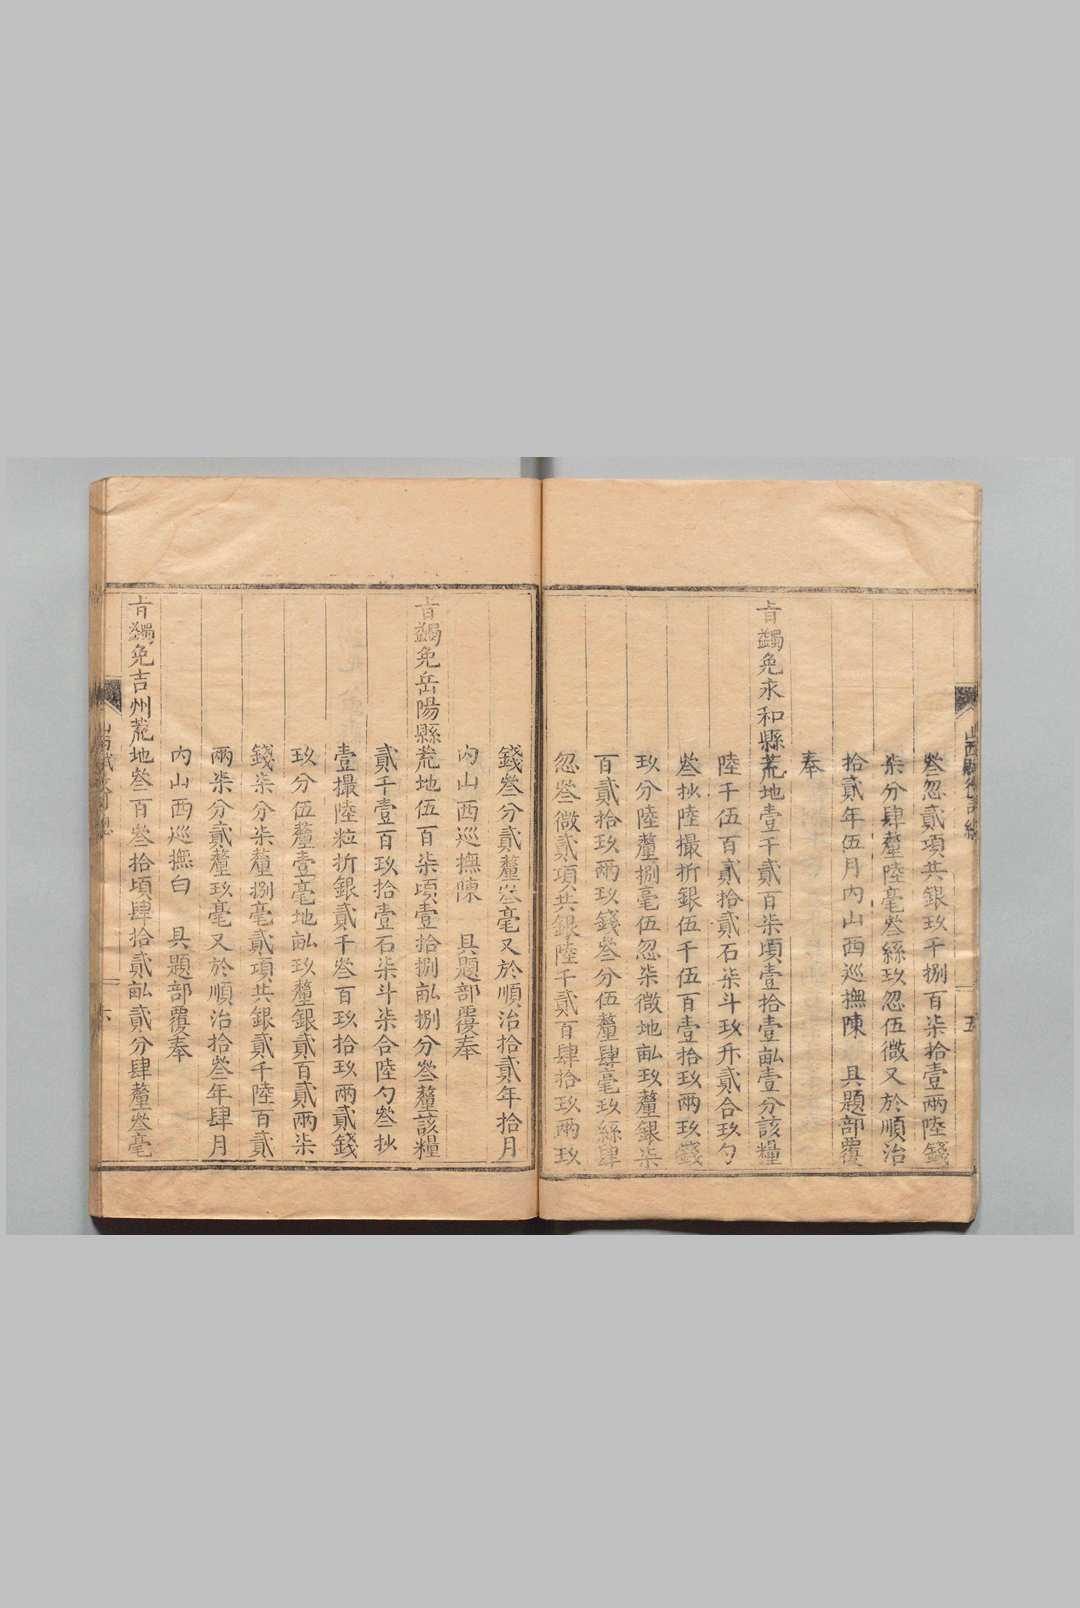 叁忽貳項共銀玖千捌百柒拾壹兩陸錢
柒分肆釐陸毫叁絲玖忽伍微又於順治
拾貳年伍月內山西巡撫陳　具題部覆
奉
旨蠲免永和縣荒地壹千貳百柒頃壹拾壹畝壹分該糧
陸千伍百貳拾貳石柒斗玖升貳合玖勺
叁抄陸撮折銀伍千伍百壹拾玖兩玖錢
玖分陸釐捌毫伍忽柒微地畝玖釐銀柒
百貳拾玖兩玖錢叁分伍釐肆毫玖絲肆
忽叁微貳項共銀陸千貳百肆拾玖兩玖
錢叁分貳釐叁毫又於順治拾貳年拾月
內山西巡撫陳　具題部覆奉
旨蠲免岳陽縣荒地伍百柒頃壹拾捌畝捌分叁釐該糧
貳千壹百玖拾壹石柒斗柒合陸勺叁抄
壹撮陸粒折銀貳千叁百玖拾玖兩貳錢
玖分伍釐壹毫地畝玖釐銀貳百貳兩柒
錢柒分柒釐捌毫貳項共銀貳千陸百貳
兩柒分貳釐玖毫又於順治拾叁年肆月
內山西巡撫白　具題部覆奉
旨蠲免吉州荒地叁百叁拾頃肆拾貳畝貳分肆釐叁毫
五
六